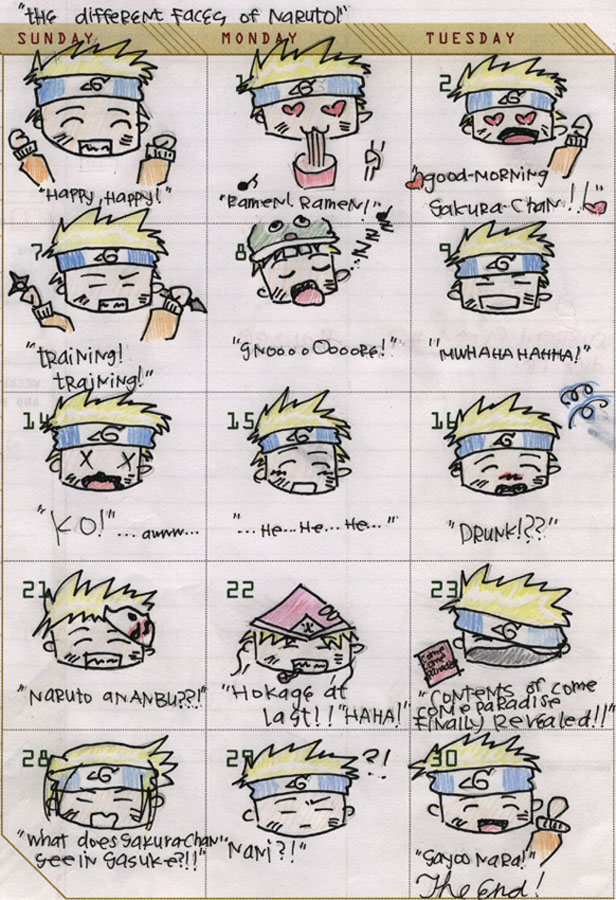 "the different faces of Naruto!"
SUNDAY MONDAY TUESDAY
"Happy, Happy!"
1
"Ramen! Ramen!"
2
"good-morning
Sakura-chan!!"
7
"training!
training!"
8
NNNN
"gnooooOooore!"
9
"MWHAHAHAHHA!"
14
"KO!" ...awww...
15
"...He...He...He..."
16
"DRUNK!??"
21
"Naruto an ANBU??!"
22
"Hokage at
last!! "HAHA!"
23
come
come
paradise
"Contents of come
come paradise
finally revealed!!"
28
"what does Sakura-chan
see in Sasuke?!!"
29
?!
"Nani?!"
30
"Sayoonara!"
The End!